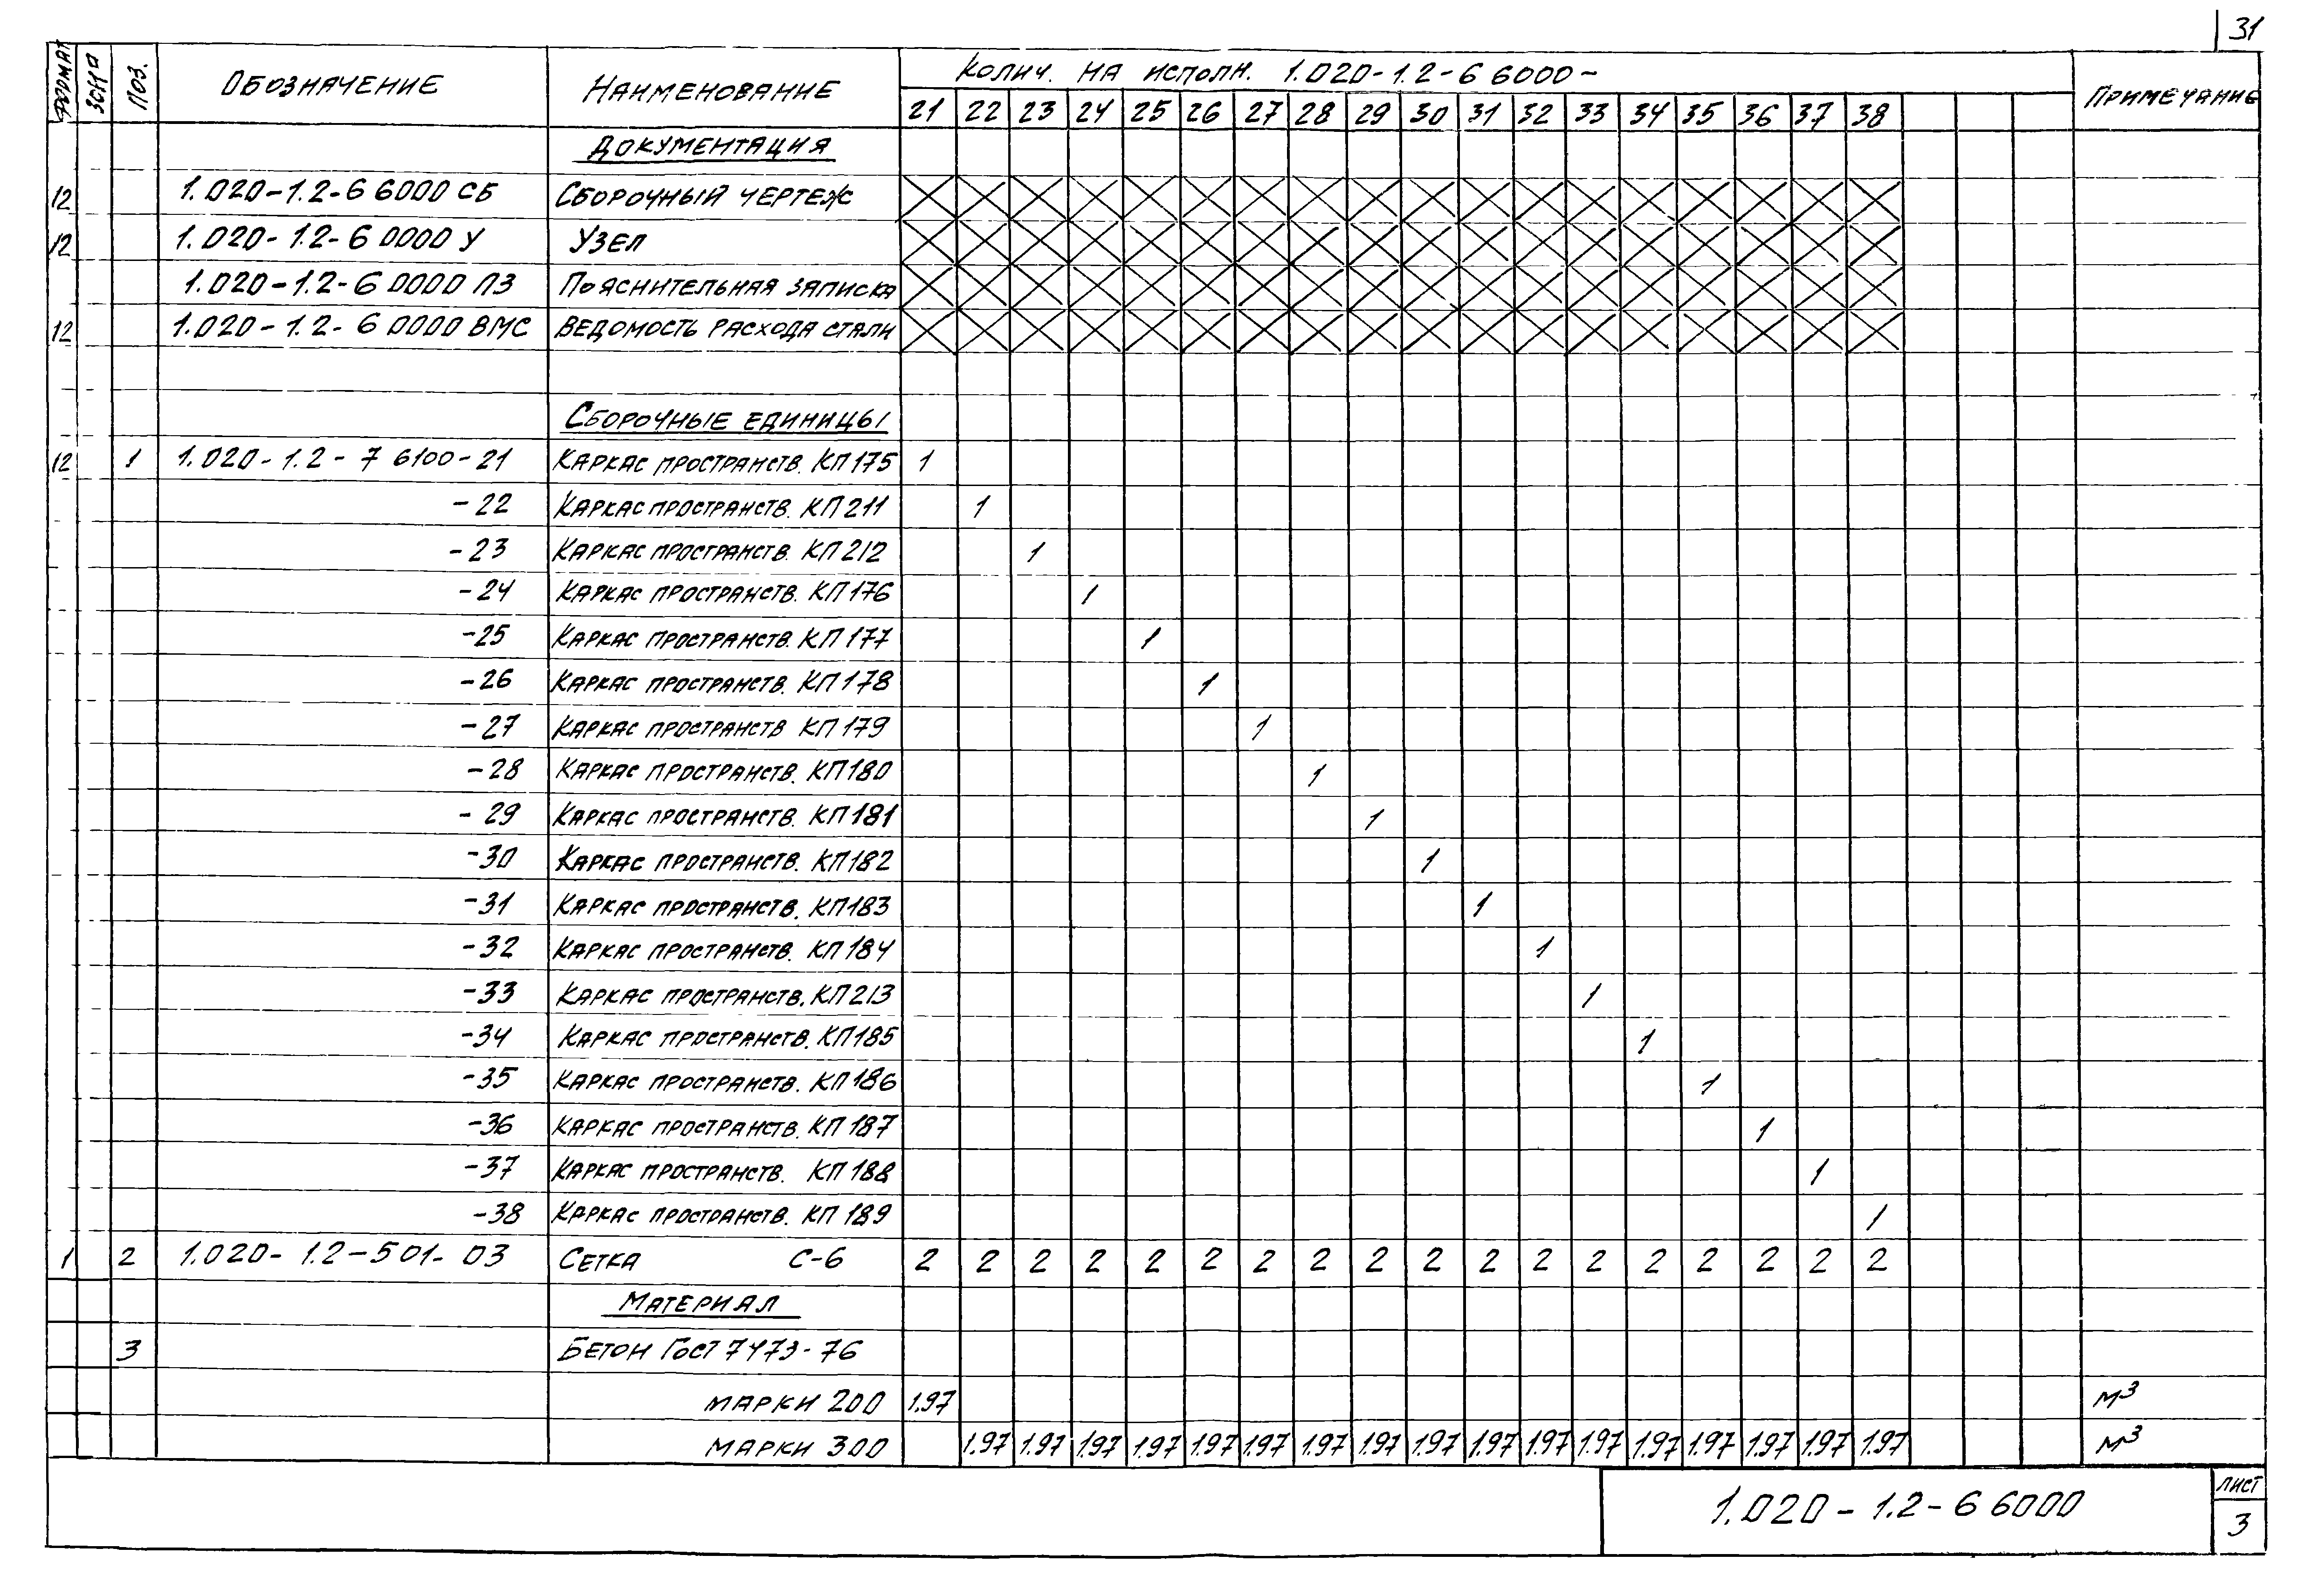 31
Формат Зона Поз. Обозначение Наименование Колич. на исполн. 1.020-1.2-6 6000- Примечание
21 22 23 24 25 26 27 28 29 30 31 32 33 34 35 36 37 38
Документация
12 1.020-1.2-6 6000 СБ Сборочный чертеж
12 1.020-1.2-6 0000 У Узел
1.020-1.2-6 0000 ПЗ Пояснительная записка
12 1.020-1.2-6 0000 ВМС Ведомость расхода стали
Сборочные единицы
12 1 1.020-1.2-7 6100-21 Каркас пространств. КП175 1
-22 Каркас пространств. КП211 1
-23 Каркас пространств. КП212 1
-24 Каркас пространств. КП176 1
-25 Каркас пространств. КП177 1
-26 Каркас пространств. КП178 1
-27 Каркас пространств КП179 1
-28 Каркас пространств. КП180 1
-29 Каркас пространств. КП181 1
-30 Каркас пространств. КП182 1
-31 Каркас пространств. КП183 1
-32 Каркас пространств. КП184 1
-33 Каркас пространств. КП213 1
-34 Каркас пространств. КП185 1
-35 Каркас пространств. КП186 1
-36 Каркас пространств. КП187 1
-37 Каркас пространств. КП188 1
-38 Каркас пространств. КП189 1
1 2 1.020-1.2-501-03 Сетка С-6 2 2 2 2 2 2 2 2 2 2 2 2 2 2 2 2 2 2
Материал
3 Бетон Гост 7473-76
марки 200 1.97 м³
марки 300 1.97 1.97 1.97 1.97 1.97 1.97 1.97 1.97 1.97 1.97 1.97 1.97 1.97 1.97 1.97 1.97 1.97 м³
1.020-1.2-6 6000
лист
3